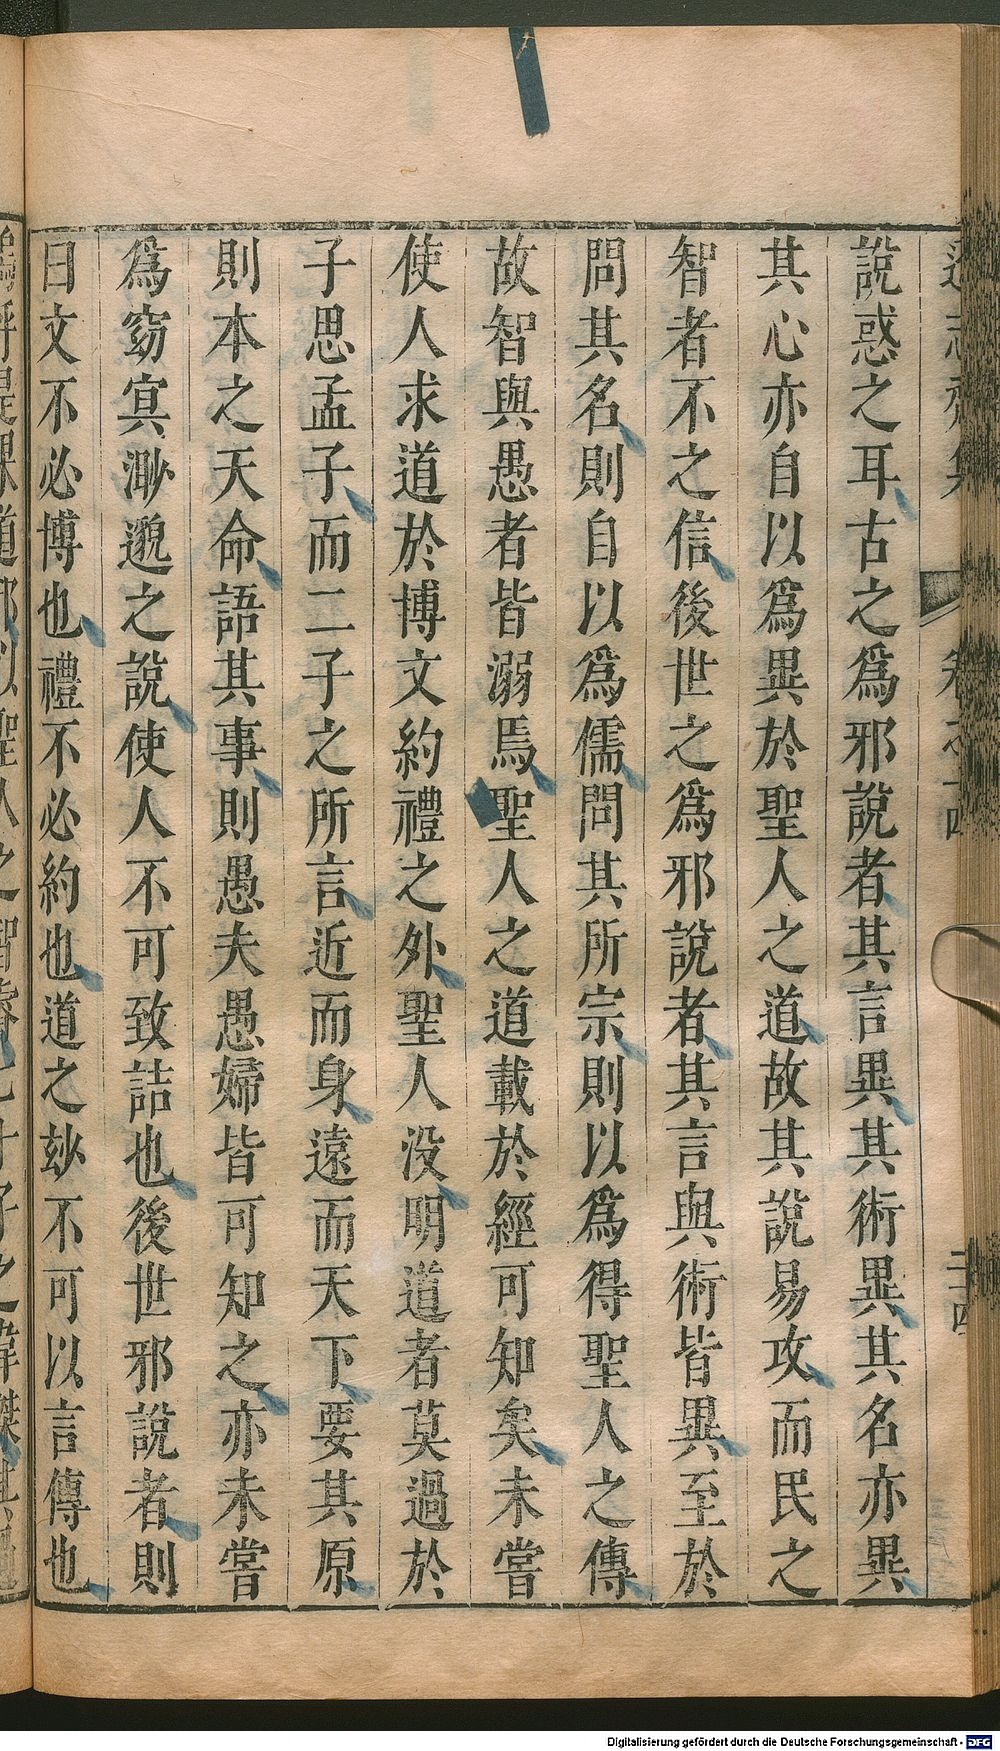 說惑之耳古之爲邪說者其言異其術異其名亦異
其心亦自以爲異於聖人之道故其說易攻而民之
智者不之信後世之爲邪說者其言與術皆異至於
問其名則自以爲儒問其所宗則以爲得聖人之傳
故智與愚者皆溺焉聖人之道載於經可知矣未嘗
使人求道於博文約禮之外聖人没明道者莫過於
子思孟子而二子之所言近而身遠而天下要其原
則本之天命語其事則愚夫愚婦皆可知之亦未嘗
爲窈冥渺邈之說使人不可致詰也後世邪說者則
曰文不必博也禮不必約也道之玅不可以言傳也
卷之十四
二十四
Digitalisierung gefördert durch die Deutsche Forschungsgemeinschaft - DFG